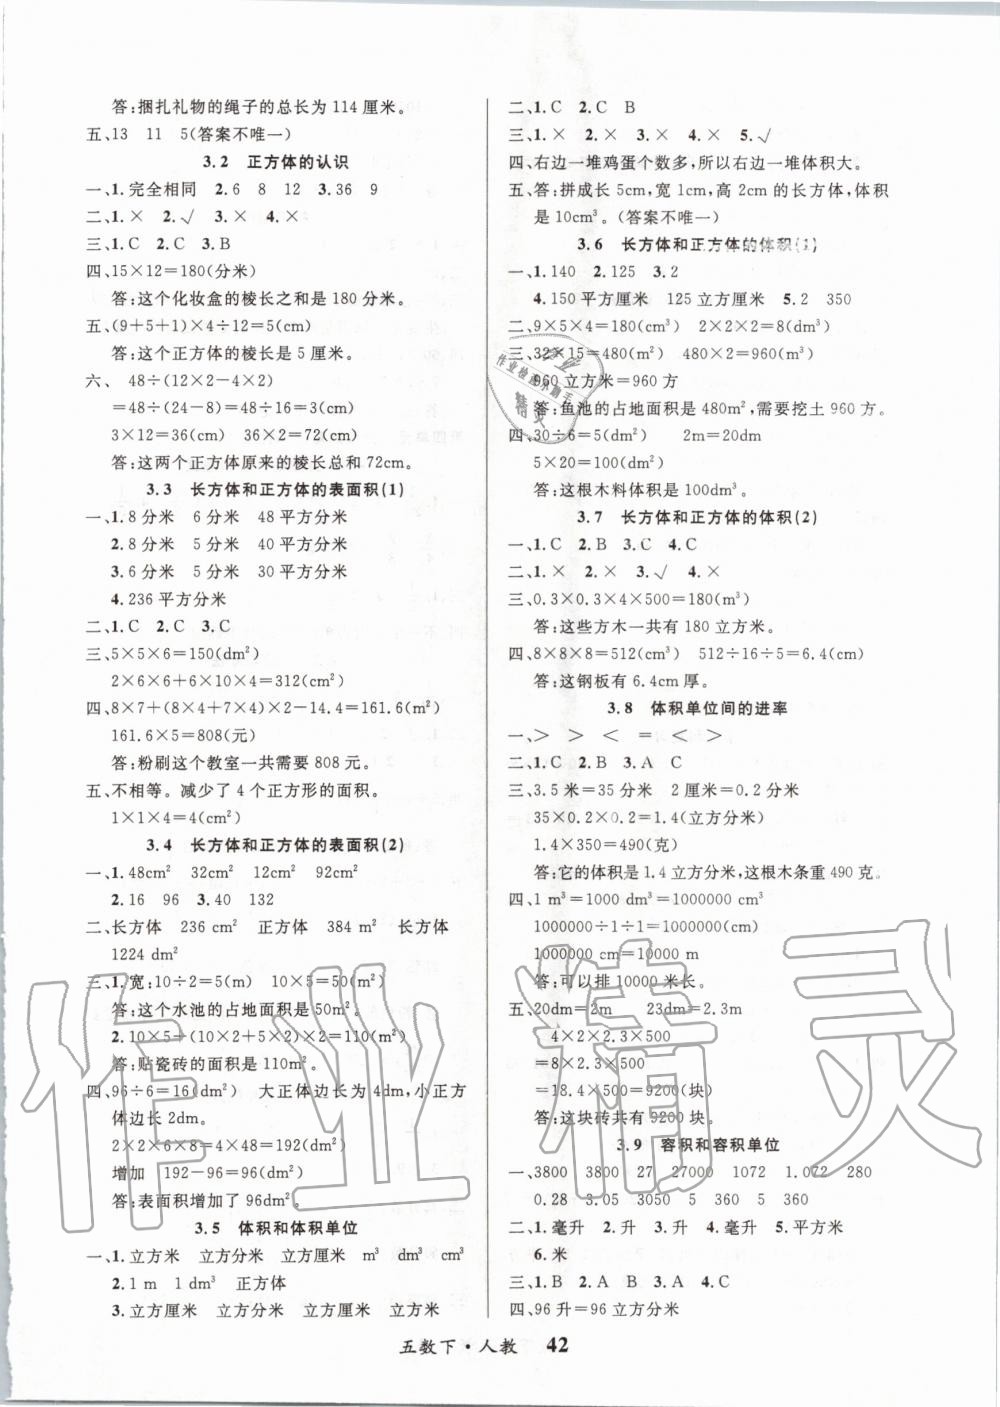 答:捆扎礼物的绳子的总长为114厘米。
五、13 11 5(答案不唯一)
3.2 正方体的认识
一、1.完全相同 2.6 8 12 3.36 9
二、1.× 2.√ 3.× 4.×
三、1.C 2.C 3.B
四、15×12=180(分米)
答:这个化妆盒的棱长之和是180分米。
五、(9+5+1)×4÷12=5(cm)
答:这个正方体的棱长是5厘米。
六、 48÷(12×2-4×2)
=48÷(24-8)=48÷16=3(cm)
3×12=36(cm) 36×2=72(cm)
答:这两个正方体原来的棱长总和72cm。
3.3 长方体和正方体的表面积(1)
一、1.8分米 6分米 48平方分米
2.8分米 5分米 40平方分米
3.6分米 5分米 30平方分米
4.236平方分米
二、1.C 2.C 3.C
三、5×5×6=150(dm²)
2×6×6+6×10×4=312(cm²)
四、8×7+(8×4+7×4)×2-14.4=161.6(m²)
161.6×5=808(元)
答:粉刷这个教室一共需要808元。
五、不相等。减少了4个正方形的面积。
1×1×4=4(cm²)
3.4 长方体和正方体的表面积(2)
一、1.48cm² 32cm² 12cm² 92cm²
2.16 96 3.40 132
二、长方体 236 cm² 正方体 384 m² 长方体
1224 dm²
三、1.宽:10÷2=5(m) 10×5=50(m²)
答:这个水池的占地面积是50m²。
2.10×5+(10×2+5×2)×2=110(m²)
答:贴瓷砖的面积是110m²。
四、96÷6=16(dm²) 大正体边长为4dm,小正方
体边长2dm。
2×2×6×2×4=4×48=192(dm²)
增加 192-96=96(dm²)
答:表面积增加了96dm²。
3.5 体积和体积单位
一、1.立方米 立方分米 立方厘米 m³ dm³ cm³
2.1 m 1 dm³ 正方体
3.立方厘米 立方分米 立方厘米 立方米
二、1.C 2.C B
三、1.× 2.× 3.× 4.× 5.√
四、右边一堆鸡蛋个数多,所以右边一堆体积大。
五、答:拼成长5cm,宽1cm,高2cm的长方体,体积
是10cm³。(答案不唯一)
3.6 长方体和正方体的体积(1)
一、1.140 2.125 3.2
4.150平方厘米 125立方厘米 5.2 350
二、9×5×4=180(cm³) 2×2×2=8(dm³)
三、32×15=480(m²) 480×2=960(m³)
960立方米=960方
答:鱼池的占地面积是480m²,需要挖土960方。
四、30÷6=5(dm²) 2m=20dm
5×20=100(dm³)
答:这根木料体积是100dm³。
3.7 长方体和正方体的体积(2)
一、1.C 2.B 3.C 4.C
二、1.× 2.× 3.√ 4.×
三、0.3×0.3×4×500=180(m³)
答:这些方木一共有180立方米。
四、8×8×8=512(cm³) 512÷16÷5=6.4(cm)
答:这钢板有6.4cm厚。
3.8 体积单位间的进率
一、> > < = < >
二、1.C 2.B 3.A C
三、3.5米=35分米 2厘米=0.2分米
35×0.2×0.2=1.4(立方分米)
1.4×350=490(克)
答:它的体积是1.4立方分米,这根木条重490克。
四、1 m³=1000 dm³=1000000 cm³
1000000÷1÷1=1000000(cm)
1000000 cm=10000 m
答:可以排10000米长。
五、20dm=2m 23dm=2.3m
4×2×2.3×500
=8×2.3×500
=18.4×500=9200(块)
答:这块砖共有9200块。
3.9 容积和容积单位
一、3800 3800 27 27000 1072 1.072 280
0.28 3.05 3050 5 360 5 360
二、1.毫升 2.升 3.升 4.毫升 5.平方米
6.米
三、1.B 2.A B 3.A 4.C
四、96升=96立方分米
五数下·人教 42
作业精灵
作业检查小助手